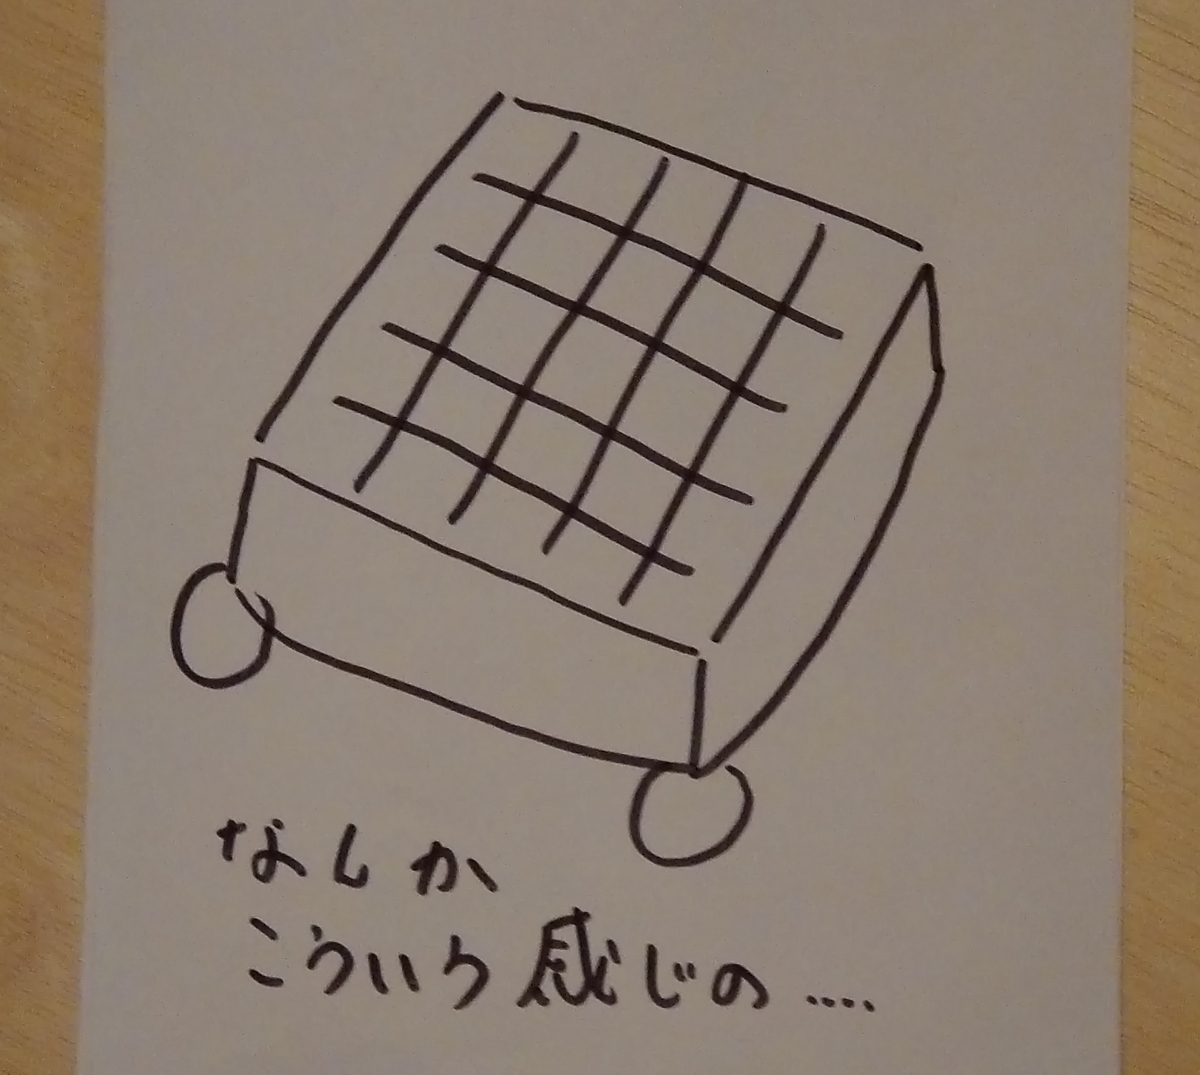 なしか
こういう感じの....